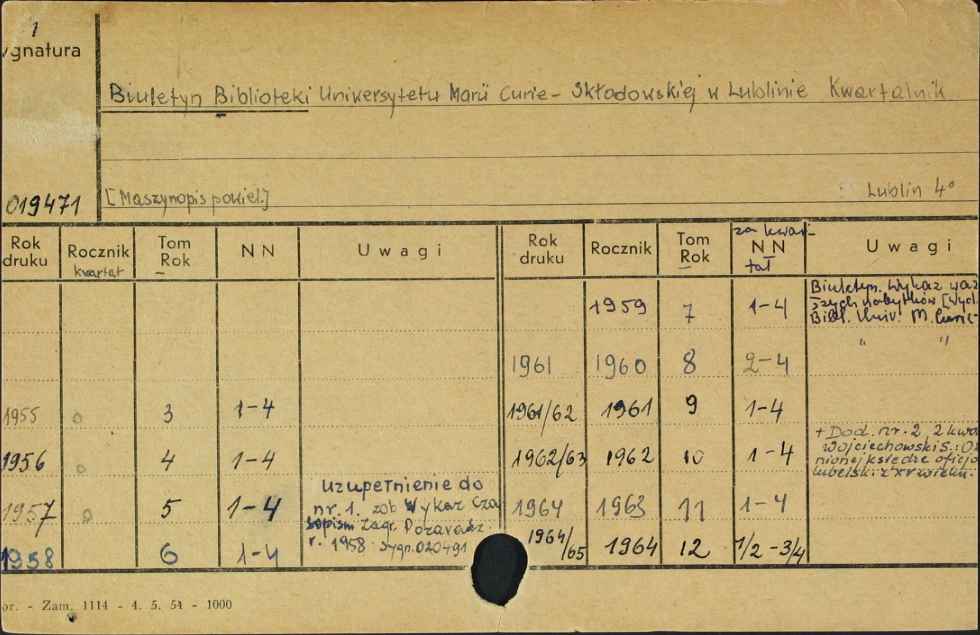 1
ygnatura
Biuletyn Biblioteki Uniwersytetu Marii Curie-Skłodowskiej w Lublinie Kwartalnik
019471
[Maszynopis powiel.]
Lublin 4°
Rok druku Rocznik kwartał Tom Rok NN Uwagi
1955 0 3 1-4
1956 0 4 1-4
1957 0 5 1-4
1958 6 1-4
uzupełnienie do
nr. 1. zob Wykaz Cza
sopism Zagr.
r. 1958 sygn. 020491
Rok druku Rocznik Tom Rok za kwar- NN tał Uwagi
1959 7 1-4
Biuletyn. Wykaz waż
szych nabytków [wyd.
Bibl. Uniw. M. Curie-
1961 1960 8 2-4 " "
1961/62 1961 9 1-4
1962/63 1962 10 1-4
+ Dod. nr. 2, 2 kwa
Wojciechowski S.: O
nionej księdze oficja
lubelsk. z XV wieku.
1964 1963 11 1-4
1964/65 1964 12 1/2-3/4
or. - Zam. 1114 - 4. 5. 54 - 1000